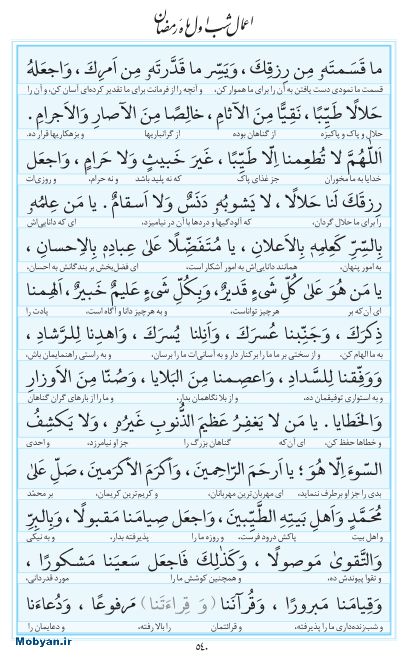 اعمال شب اول ماه رمضان
ما قَسَمتَهُ مِن رِزقِكَ ، وَيَسِّر ما قَدَّرتَهُ مِن اَمرِكَ ، وَاجعَلهُ
قسمت ما نمودی دست یافتن به آن را برای ما هموار کن، و آنچه را از فرمانت برای ما تقدیر کرده‌ای آسان کن، و آن را
حَلالًا طَيِّبًا ، نَقِيًّا مِنَ الآثامِ ، خالِصًا مِنَ الآصارِ وَالاَجرامِ .
حلال و پاک و پاکیزه از گناهان بوده از گرانبارها و بزهکاریها قرار ده.
اَللّٰهُمَّ لا تُطعِمنا اِلّا طَيِّبًا ، غَيرَ خَبيثٍ وَلا حَرامٍ ، وَاجعَل
خدایا به ما مخوران جز غذای پاک که نه پلید باشد و نه حرام، و روزی‌ات
رِزقَكَ لَنا حَلالًا ، لا يَشوبُهُ دَنَسٌ وَلا اَسقامٌ . يا مَن عِلمُهُ
را برای ما حلال گردان، که آلودگیها و دردها با آن در نیامیزد، ای که دانایی‌اش
بِالسِّرِّ كَعِلمِهِ بِالاَعلانِ ، يا مُتَفَضِّلًا عَلىٰ عِبادِهِ بِالاِحسانِ ،
به امور پنهان، همانند دانایی‌اش به امور آشکار است، ای فضل‌بخش بر بندگانش به احسان،
يا مَن هُوَ عَلىٰ كُلِّ شَيءٍ قَديرٌ، وَبِكُلِّ شَيءٍ عَليمٌ خَبيرٌ، اَلهِمنا
ای آن‌که بر هرچیز تواناست، و به هرچیز دانا و آگاه است، یادت را
ذِكرَكَ ، وَجَنِّبنا عُسرَكَ ، وَاَنِلنا يُسرَكَ ، وَاهدِنا لِلرَّشادِ ،
به ما الهام کن، و از سختی بر ما ما را برکنار دار و به آسانی‌ات ما را برسان، و به راستی راهنمایمان باش،
وَوَفِّقنا لِلسَّدادِ ، وَاعصِمنا مِنَ البَلايا ، وَصُنّا مِنَ الاَوزارِ
و به استواری توفیقمان ده، و از بلا نگاهمان بدار، و ما را از بارهای گران گناهان
وَالخَطايا . يا مَن لا يَغفِرُ عَظيمَ الذُّنوبِ غَيرُهُ ، وَلا يَكشِفُ
و خطاها حفظ کن، ای آن‌که گناهان بزرگ را جز او نیامرزد، و احدی
السّوءَ اِلّا هُوَ ؛ يا اَرحَمَ الرّاحِمينَ، وَاَكرَمَ الاَكرَمينَ، صَلِّ عَلىٰ
بدی را جز او برطرف ننماید، ای مهربان‌ترین مهربانان، و کریم‌ترین کریمان، بر محمّد
مُحَمَّدٍ وَاَهلِ بَيتِهِ الطَّيِّبينَ، وَاجعَل صِيامَنا مَقبولًا ، وَبِالبِرِّ
و اهل بیت پاکش درود فرست، و روزه ما را پذیرفته بدار، و به نیکی
وَالتَّقوىٰ مَوصولًا ، وَكَذٰلِكَ فَاجعَل سَعيَنا مَشكورًا ،
و تقوا پیوندش ده، و همچنین کوشش ما را مورد قدردانی،
وَقِيامَنا مَبرورًا ، وَقُرآنَنا (وَ قِراءَتَنا) مَرفوعًا ، وَدُعاءَنا
و شب‌زنده‌داری ما را پذیرفته، و قرائتمان را بالا رفته، و دعایمان را
۵۴۰
Mobyan.ir